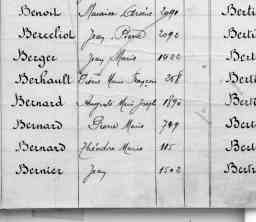 Benoit 2090 Berti
Berceliot Jean Pierre 2092 Berti
Berger Jean Marie 1422 Berth
Berhault Pierre Marie François 258 Berth
Bernard Auguste Marie Joseph 1890 Berth
Bernard Pierre Marie 749 Bert
Bernard Théodore Marie 115 Bert
Bernier Jean 1502 Bertr